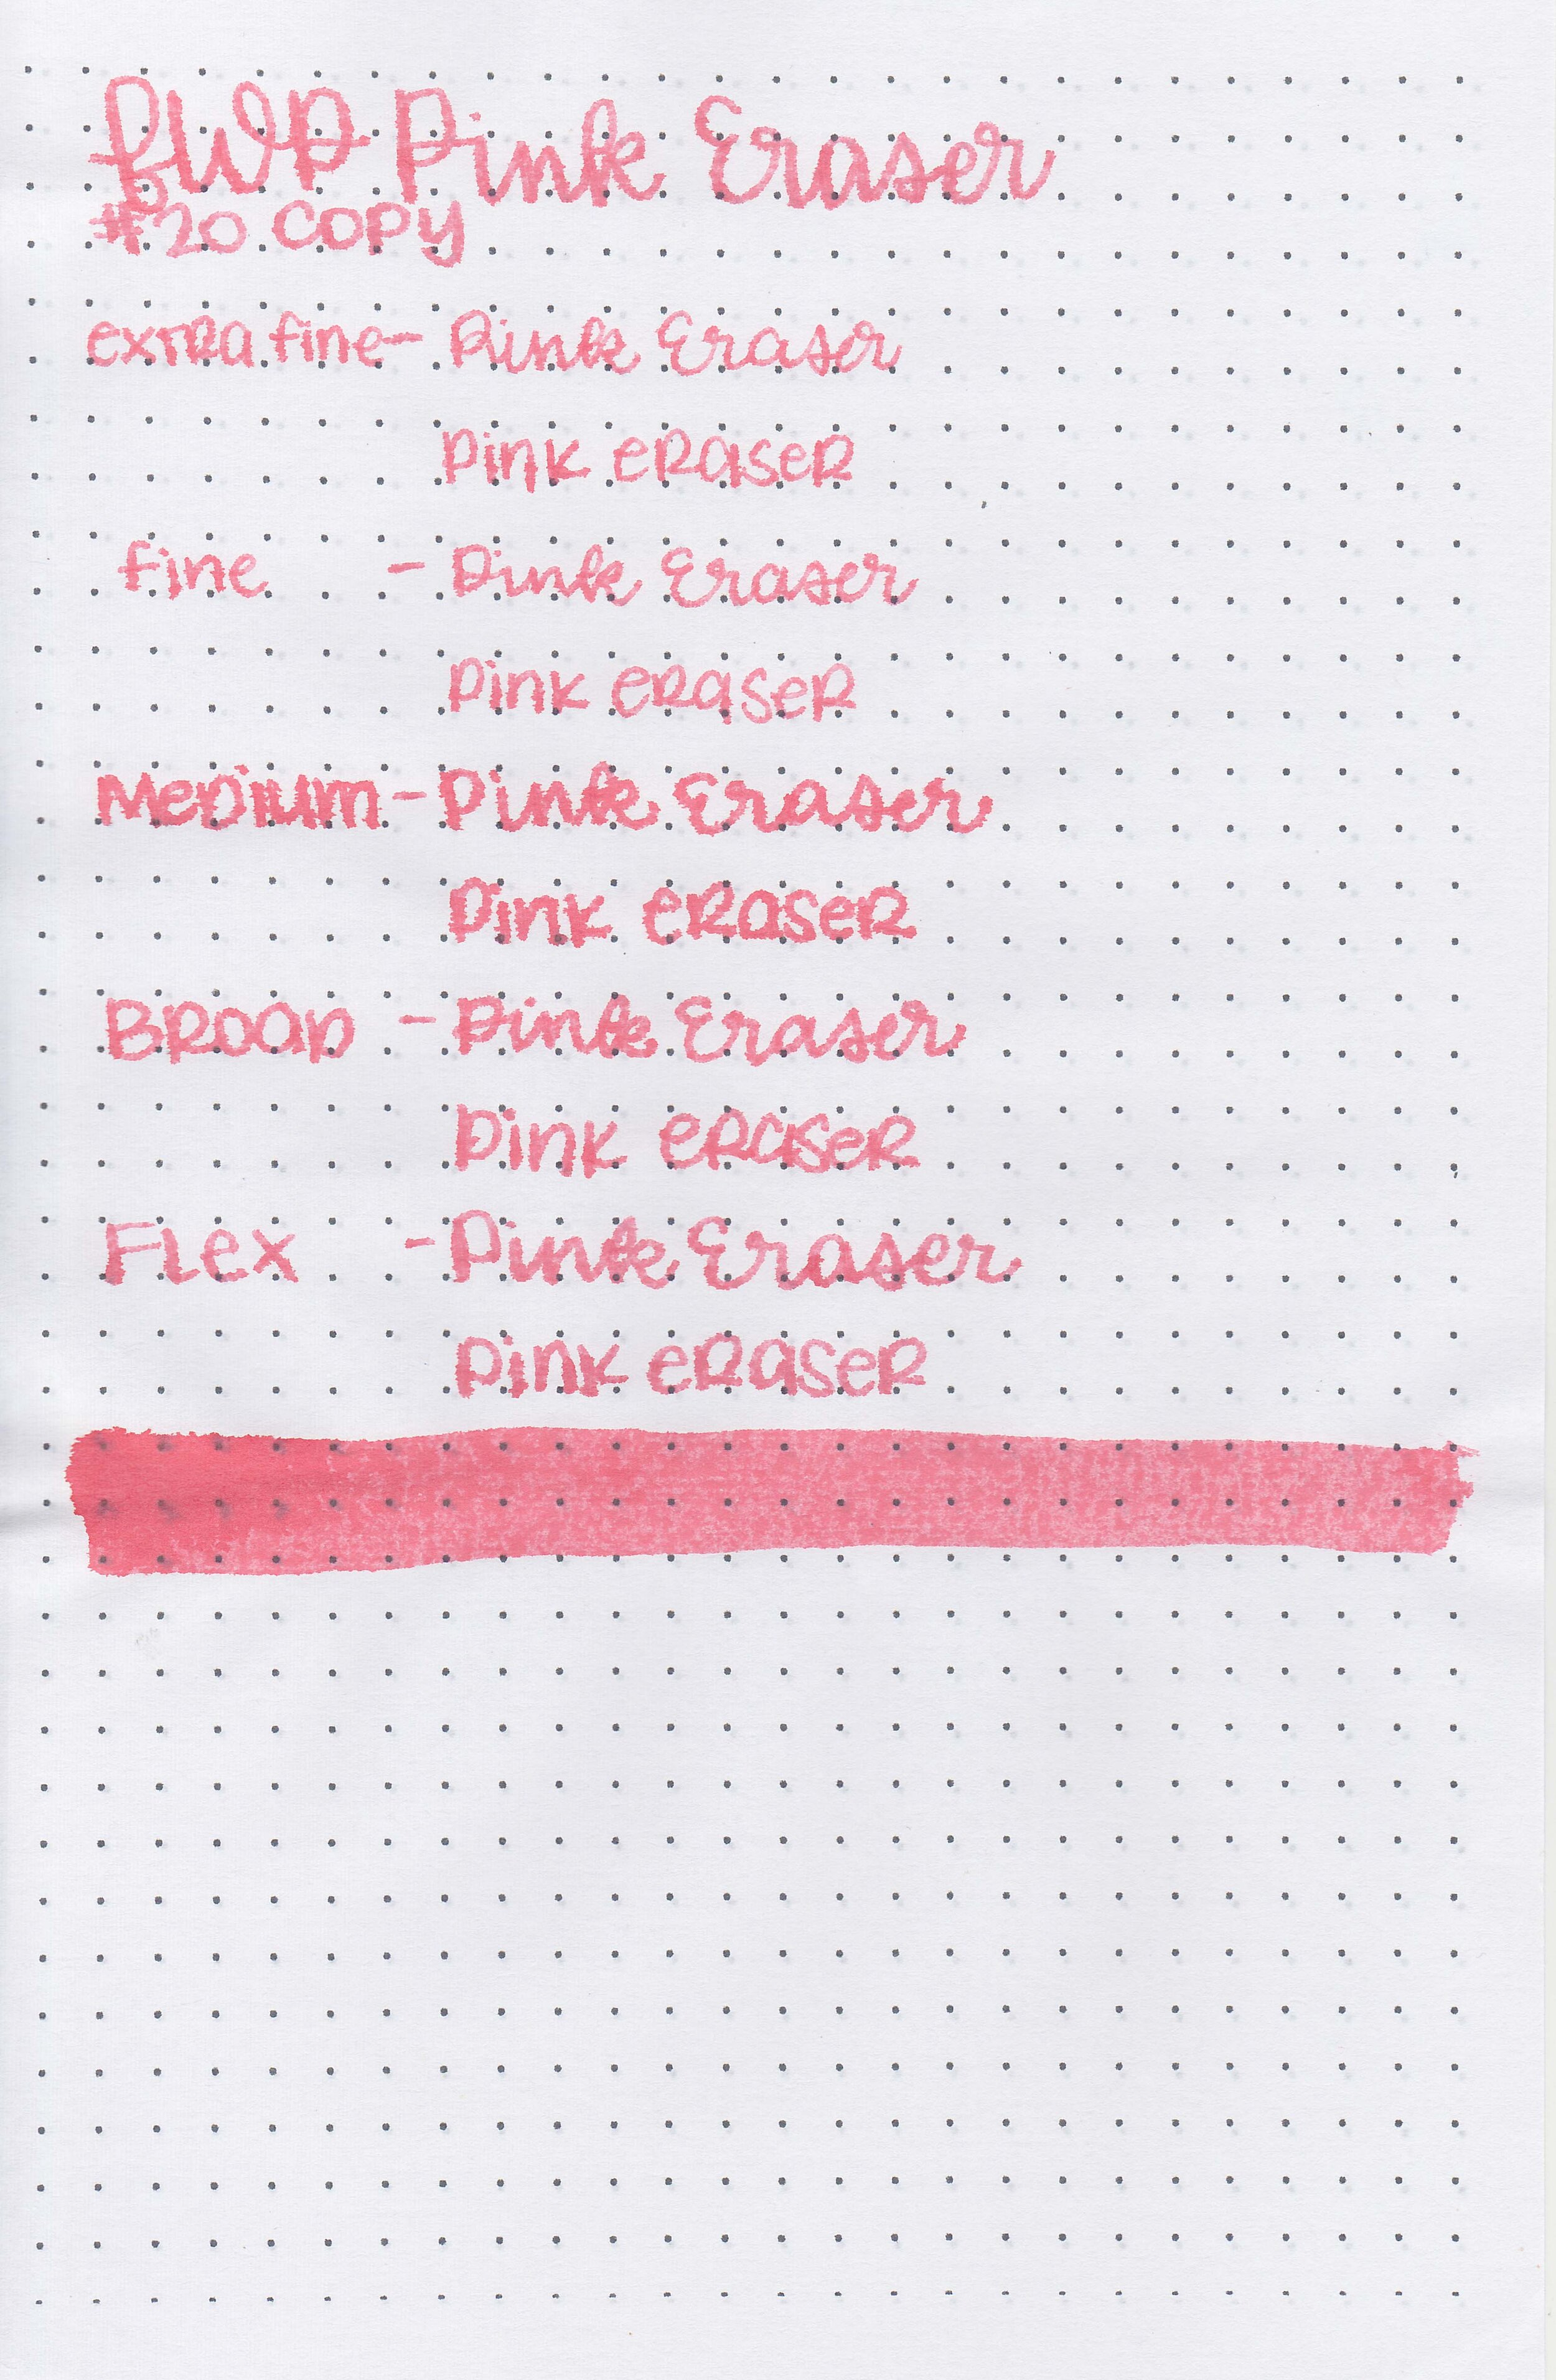 FWP Pink Eraser
#20 COPY
extra fine - Pink Eraser
Pink eraser
fine - Pink Eraser
Pink eraser
Medium - Pink Eraser
Pink eraser
Broad - Pink Eraser
Pink eraser
Flex - Pink Eraser
Pink eraser